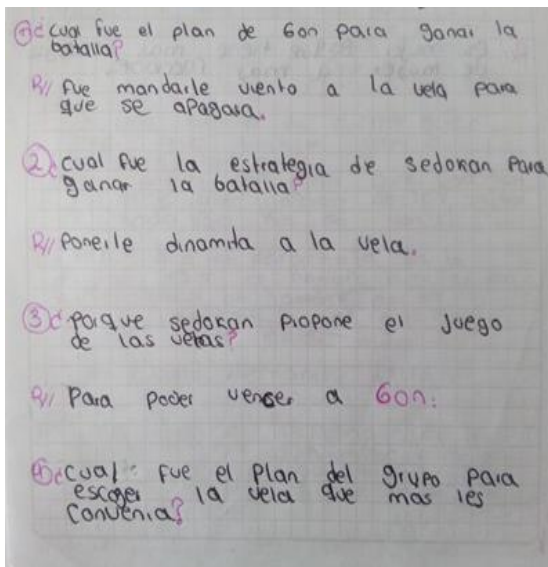 ①¿cual fue el plan de Gon para ganar la
batalla?
R// fue mandarle viento a la vela para
que se apagara.
②¿cual fue la estrategia de sedokan para
ganar la batalla?
R// Ponerle dinamita a la vela.
③¿porque sedokan propone el juego
de las velas?
R// Para poder vencer a Gon.
④¿cual fue el plan del grupo para
escoger la vela que mas les
convenia?